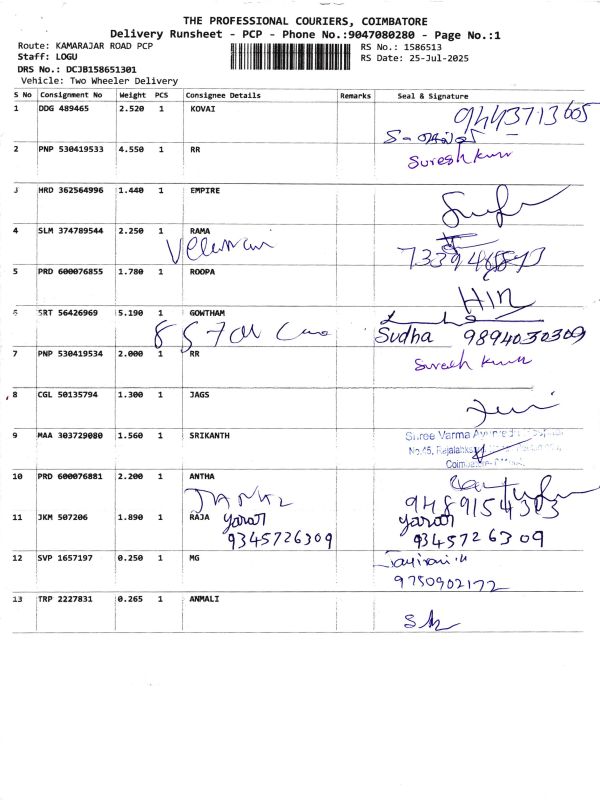 THE PROFESSIONAL COURIERS, COIMBATORE
Delivery Runsheet - PCP - Phone No.:9047080280 - Page No.:1
Route: KAMARAJAR ROAD PCP
Staff: LOGU
DRS No.: DCJB158651301
Vehicle: Two Wheeler Delivery
RS No.: 1586513
RS Date: 25-Jul-2025
S No Consignment No Weight PCS Consignee Details Remarks Seal & Signature
1 DDG 489465 2.520 1 KOVAI 9443713605
2 PNP 530419533 4.550 1 RR Suresh kumar
3 HRD 362564996 1.440 1 EMPIRE
4 SLM 374789544 2.250 1 RAMA
5 PRD 600076855 1.780 1 ROOPA
6 SRT 56426969 5.190 1 GOWTHAM
Sudha 9894030309
7 PNP 530419534 2.000 1 RR Suresh kumar
8 CGL 50135794 1.300 1 JAGS
9 MAA 303729080 1.560 1 SRIKANTH Shree Varma
10 PRD 600076881 2.200 1 ANTHA
9489154303
11 JKM 507206 1.890 1 RAJA
9345726309 9345726309
12 SVP 1657197 0.250 1 MG
9750902172
13 TRP 2227831 0.265 1 ANMALI